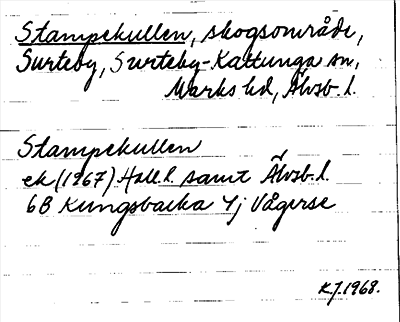 Stampekullen, skogsområde,
Surteby, Surteby-Kattunga sn,
Marks hd, Älvsb. l.
Stampekullen
ek (1967) Hall. l. samt Älvsb. l.
6B Kungsbacka 4j Vågerse
K.J. 1968.